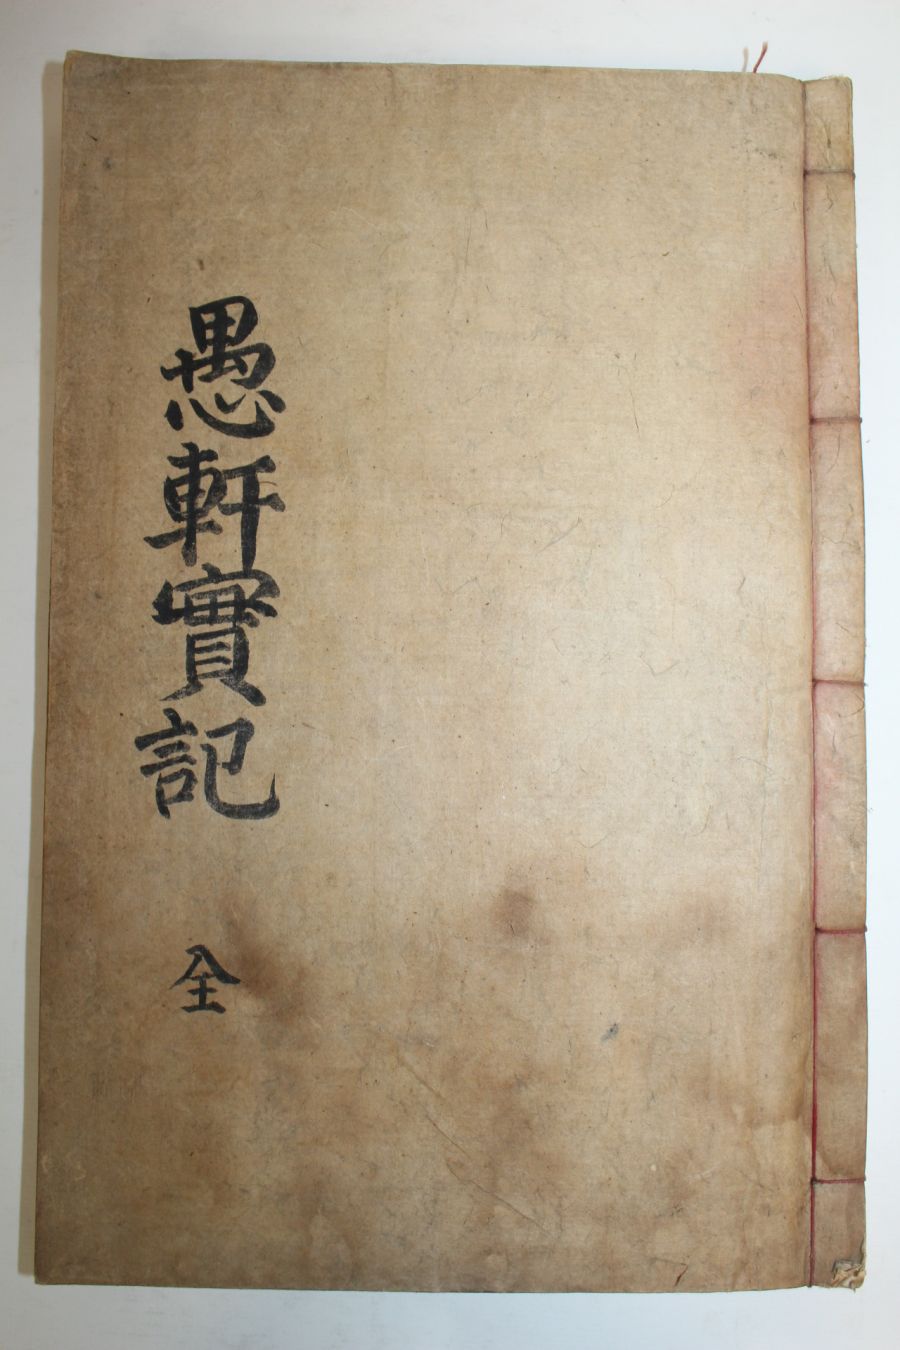 愚軒實記
全